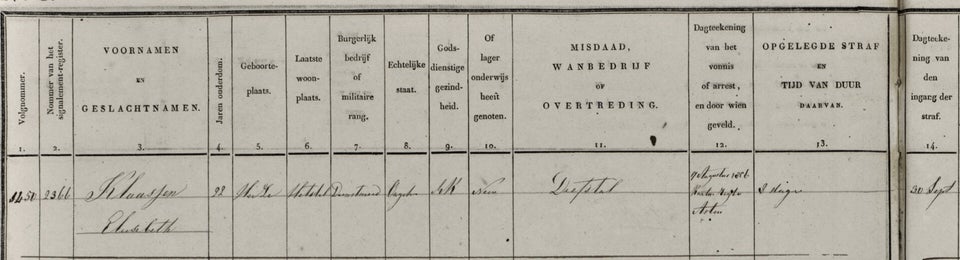 Volgnommer.
Nommer van het
signalement-register.
VOORNAMEN
EN
GESLACHTNAMEN.
Jaren ouderdom.
Geboorte-
plaats.
Laatste
woon-
plaats.
Burgerlijk
bedrijf
of
militaire
rang.
Echtelijke
staat.
Gods-
dienstige
gezind-
heid.
Of
lager
onderwijs
heeft
genoten.
MISDAAD,
WANBEDRIJF
OF
OVERTREDING.
Dagteekening
van het
vonnis
of arrest,
en door wien
geveld.
OPGELEGDE STRAF
EN
TIJD VAN DUUR
DAARVAN.
Dagteeke-
ning van
den
ingang der
straf.
1. 2. 3. 4. 5. 6. 7. 8. 9. 10. 11. 12. 13. 14.
1450 2366 Klaassen 22 RK Neen Diefstal 3 dagen 30 Sept
Elisabeth
Asten